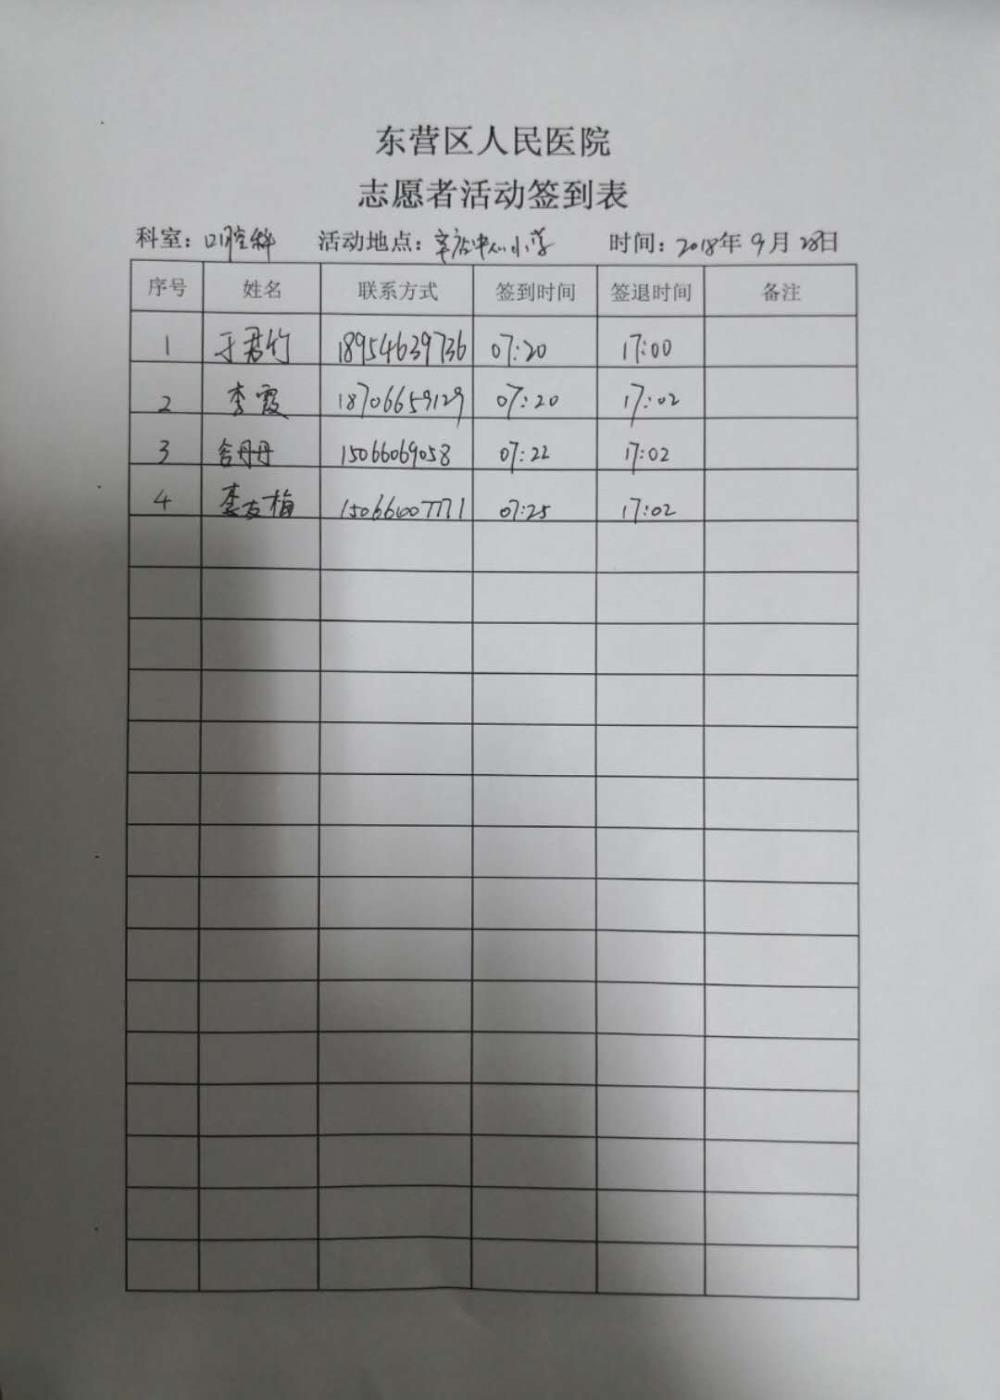 东营区人民医院
志愿者活动签到表
科室：口腔科 活动地点：辛店中心小学 时间：2018年9月28日
序号 姓名 联系方式 签到时间 签退时间 备注
1 于君竹 18954639736 07:20 17:00
2 李霞 18706659129 07:20 17:02
3 丹丹 15066069058 07:22 17:02
4 李友梅 15066007771 07:25 17:02